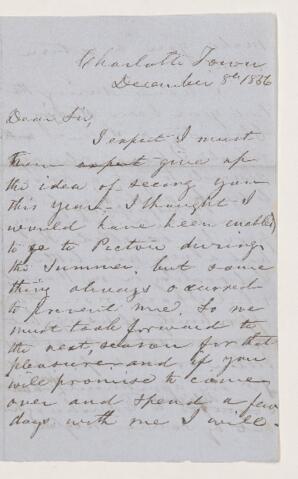 Charlotte Town
December 8th 1856
Dear Sir,
I expect I must
give up
the idea of seeing you
this year. I thought I
would have been enabled
to go to Pictou during
the Summer. but some
thing always occurred
to prevent me. So we
must look forward to
the next, season for that
pleasure. and if you
will promise to come
over and spend a few
days with me I will